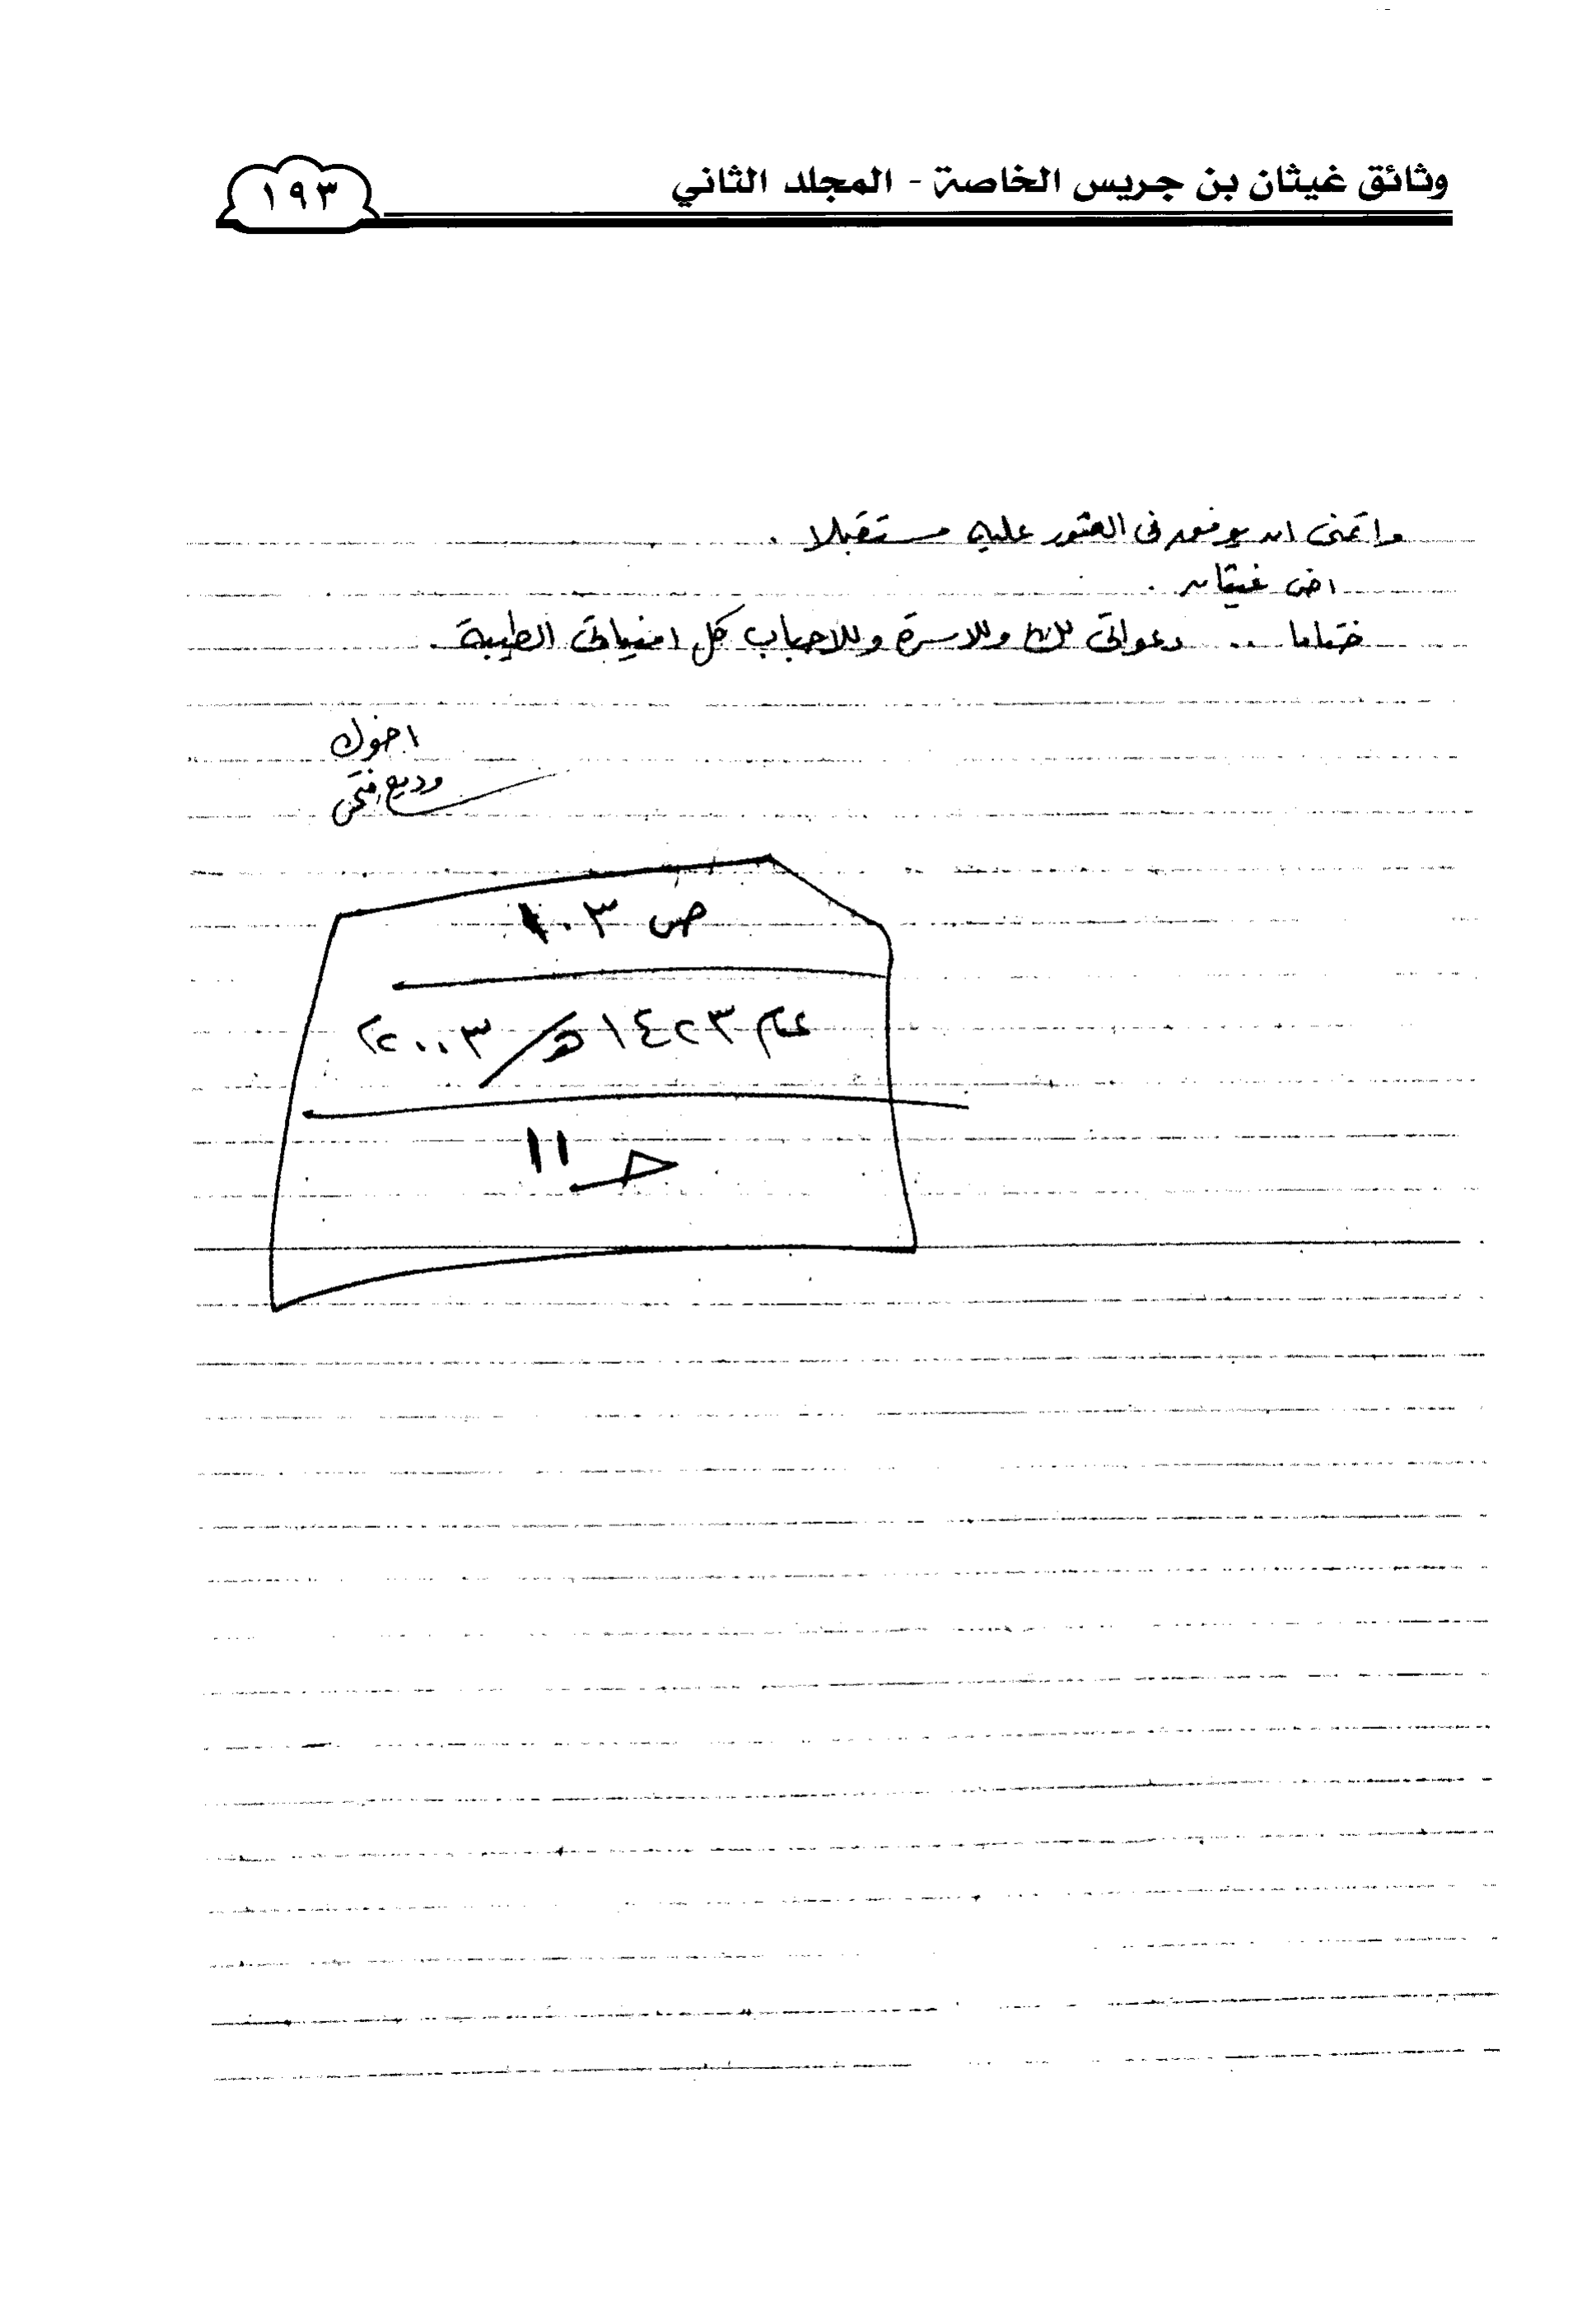 وثائق غيثان بن جريس الخاصة - المجلد الثاني
١٩٣
واتمنى ان يوفق فى العثور عليه مستقبلا .
اخى غيثان .
ختاما .. دعواتى لك وللاسرة وللاحباب كل امنياتى الطيبة .
اخوك
وديع فتحى
ص ١٠٣
عام ١٤٢٣هـ/٢٠٠٣م
حـ ١١